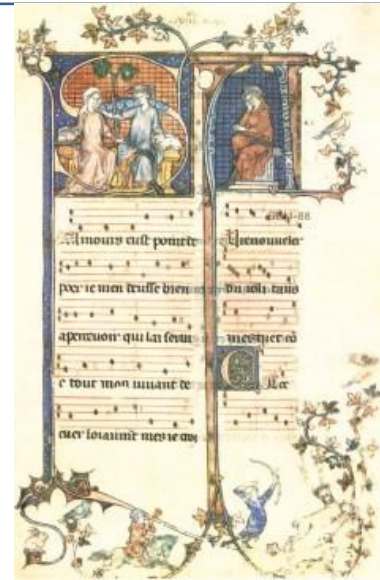 Amours eust point de
poer ie men deusse bien
aperceuoir qui lai serui
e tout mon uiuant de
cuer loiaumt mes ie croi
renouueler
du ioli tans
mestuet cō